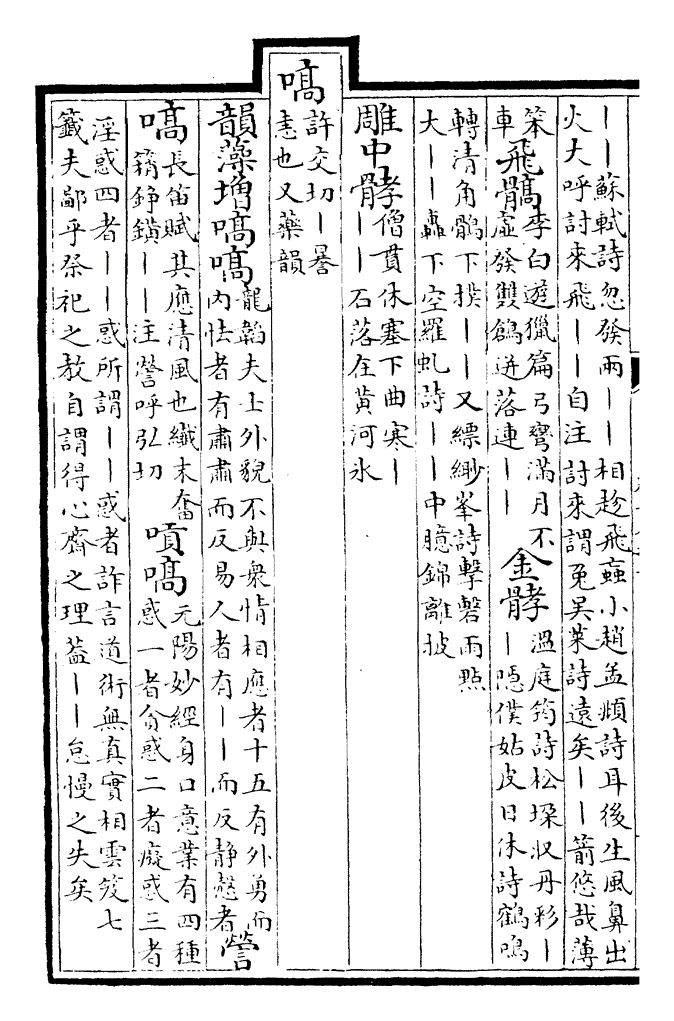 丨丨蘇軾詩忽發兩丨丨相趁飛䖟小趙孟頫詩耳後生風鼻出
火大呼討來飛丨丨自注討來謂兔吳萊詩遠矣丨丨箭悠哉薄
笨
車
飛髇
李白遊獵篇弓彎滿月不
虛發雙鶬迸落連丨丨
金䯨
溫庭筠詩松埰収丹彩丨
丨隱僕姑皮日休詩鶴鳴
轉清角鶻下撲丨丨又縹緲峯詩擊磬雨㸃
大丨丨轟下空羅虬詩丨丨中臆錦離披
雕中䯨
僧貫休塞下曲寒丨
丨丨石落在黄河氷
嗃
許交切丨謈
恚也又藥韻
韻藻增嗃嗃
龍韜夫士外貌不與衆情相應者十五有外勇而
内怯者有肅肅而反易人者有丨丨而反静慤者
謍
嗃
長笛賦其應清風也纎末奮
錚鐄丨丨注謍呼弘切
嗊嗃
元陽妙經身口意業有四種
惑一者貪惑二者癡惑三者
淫惑四者丨丨惑所謂丨丨惑者詐言道術無真實相雲笈七
籖夫鄙乎祭祀之教自謂得心齋之理葢丨丨怠慢之失矣